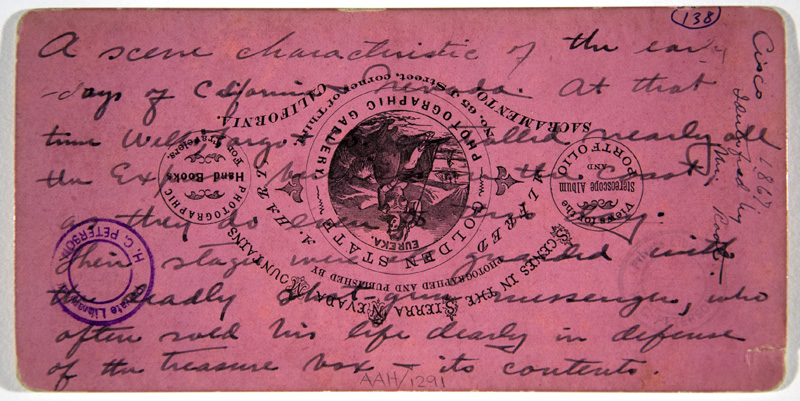 138
A scene characteristic of the early
-days of California Nevada. At that
time Wells Fargo controlled nearly all
the Ex business on the Coast
as they do even to this day.
Their stages were guarded with
the deadly shot-gun messenger, who
often sold his life dearly in defense
of the treasure box — its contents.
Cisco 1867.
Identified by
Mrs. Root
AAH/1291
SCENES IN THE SIERRA NEVADA MOUNTAINS,
PHOTOGRAPHED AND PUBLISHED BY
ALFRED A. HART,
GOLDEN STATE
PHOTOGRAPHIC GALLERY
EUREKA.
No. 65 J Street, corner of Third,
SACRAMENTO, CALIFORNIA.
Views for the
Stereoscope Album
AND
PORTFOLIO
PHOTOGRAPHIC
Hand Books
For Travelers.
H. C. PETERSON
Private Library